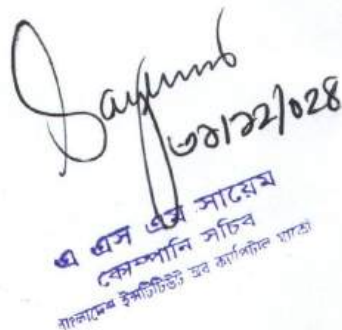 Sayem
৩১/১২/০২৪
এ এস এম সায়েম
কোম্পানি সচিব
বাংলাদেশ ইন্সটিটিউট অব ক্যাপিটাল মার্কেট